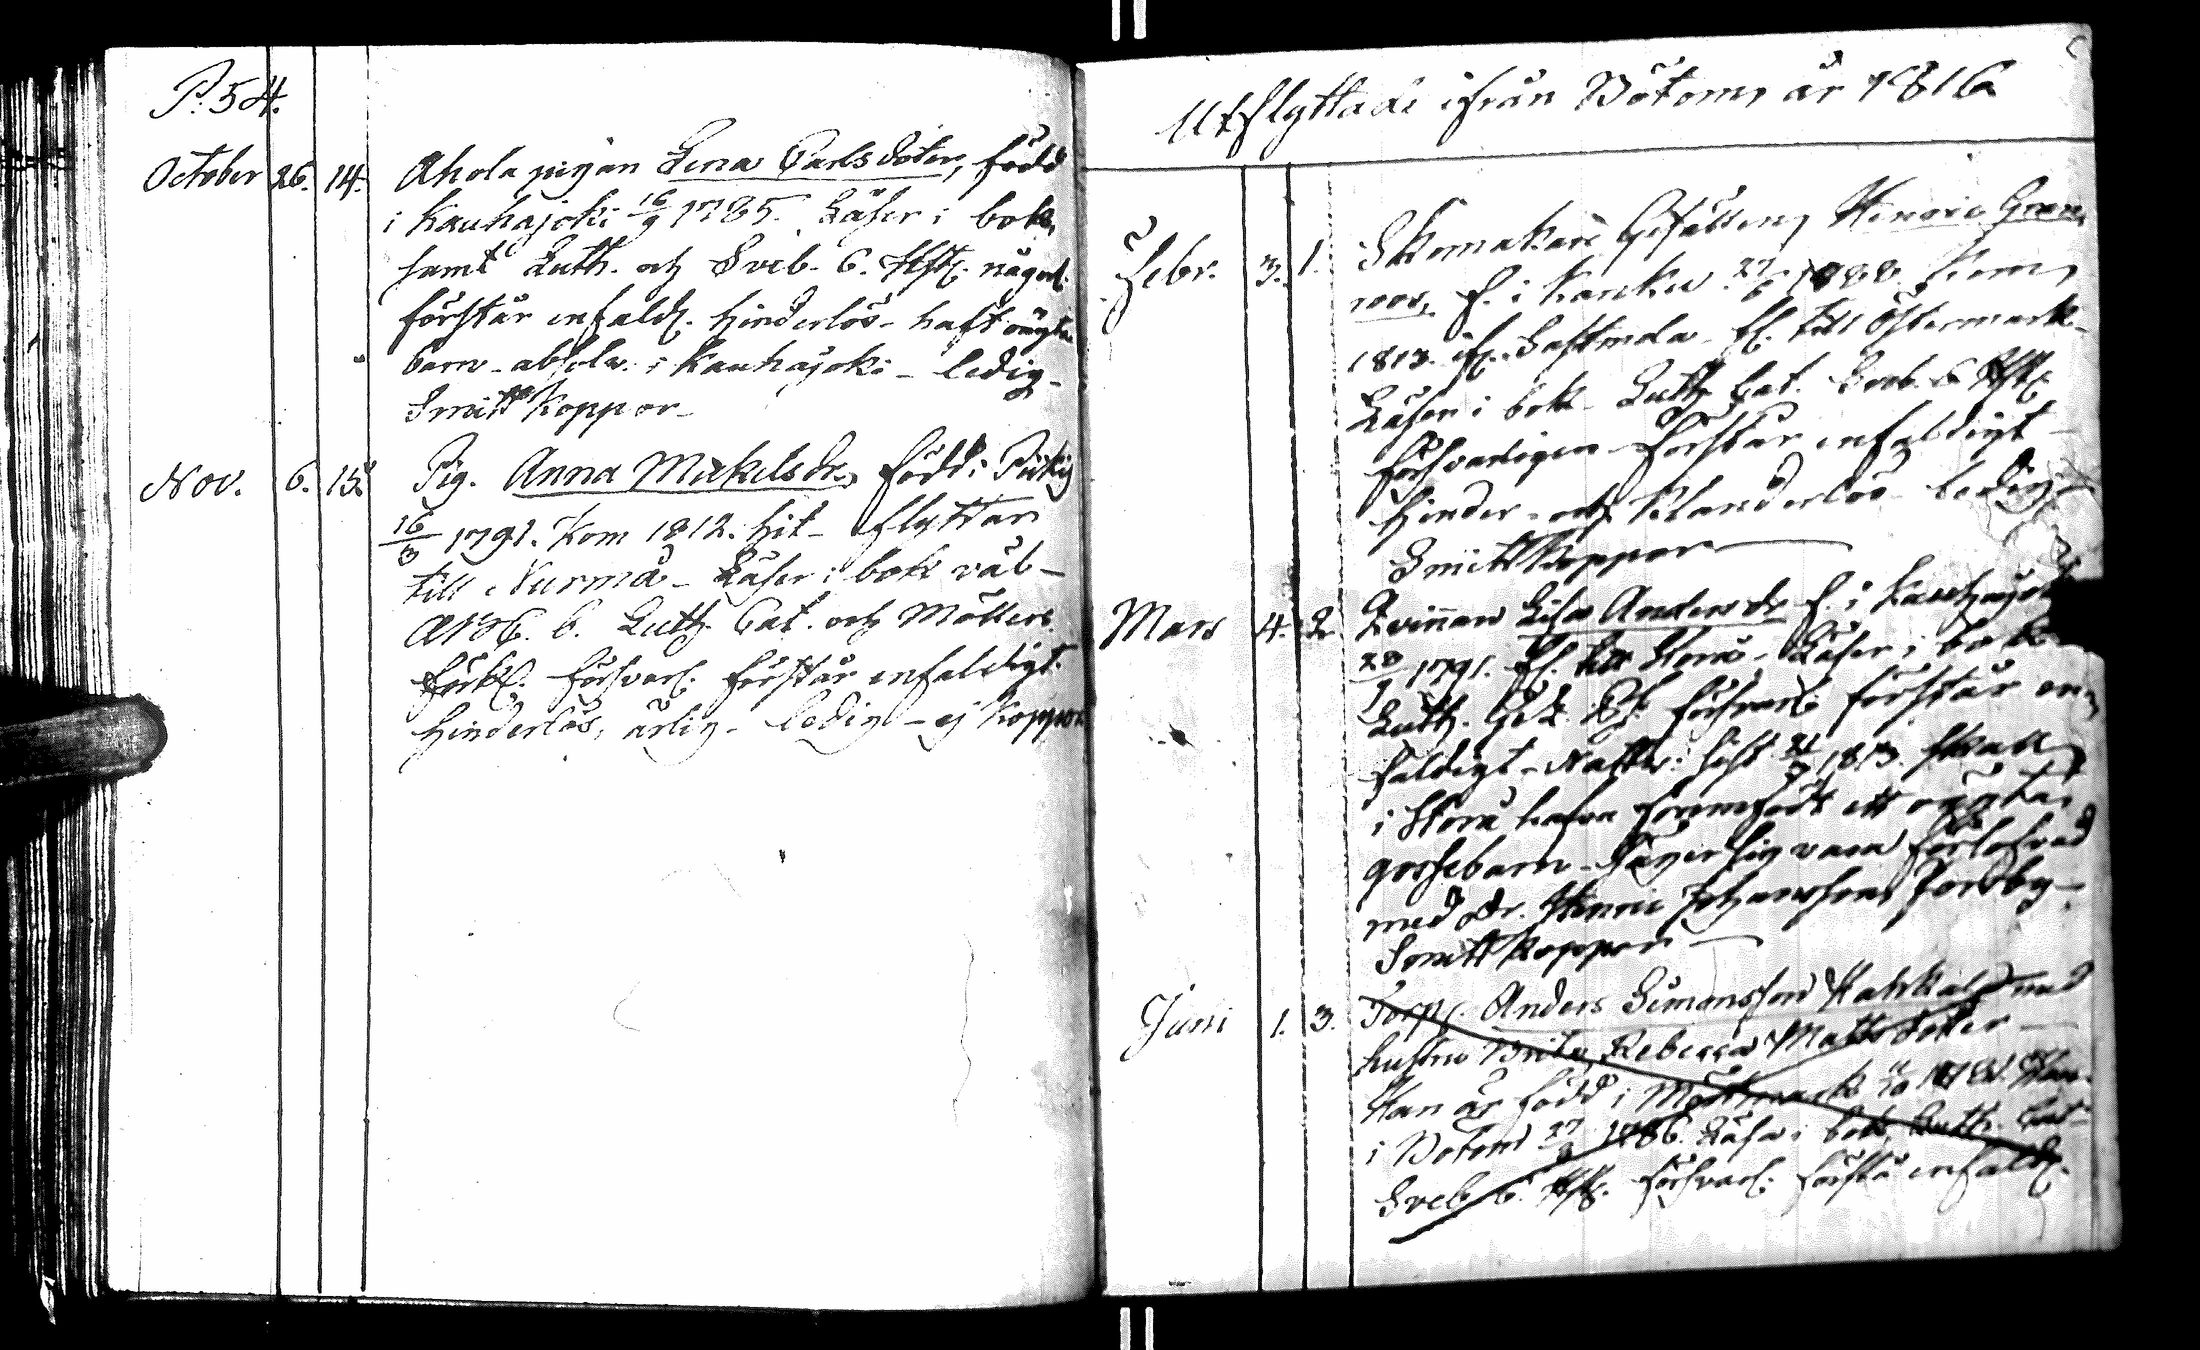 P. 54.
October 26. 14. Ahola pigan Lena Carlsdoter, född
i Kauhajoki 16/9 1785. Läser i bok
samt Luth. och Sveb. C. Hft. någorl.
förstår enfaldl. hinderlös - haft oägta
barn - absolv. i Kauhajoki - ledig -
Smitt Koppor -
Nov. 6. 15. Pig. Anna Mickelsdr. född i
16/3 1791. Kom 1812. hit - flyttar
till Nurmå - Läser i bok väl -
Luth. Cat. och Möllers
förkl. försvarl. förstår enfaldigt.
hinderlös, ärlig - ledig - ej Koppor
Utflyttade ifrån Bötom, år 1816
Febr. 3. 1. Skomakare Gesällen, Henric Gran
roos, f. i 27/6 1788. Kom,
1813. ifr. Lastmola - fl. till Östermark -
Läser i bok - Luth. Cat. Sveb. C. Hft.
försvarligen - förstår enfaldigt -
hinder- och klanderlös - ledig -
Smitt Koppor
Mars 4. 2. Qvinnan Lisa Andersdr f. i Kauhajoki
28/9 1791. fl. till Storå - Läser i bok
Luth. försvarl. förstår en-
faldigt - Nattv. sist 1813. skall
i Storå hafva framfödt ett oägta
gossebarn - säger sig vara förlofvad
med dr. Henric Johansson
Smitt Koppor -
Juni 1. 3. Torp. Anders Simonsson med
hustru Brita Rebecca Mattsdotter -
Han är född i
i Bötom 27 1786. Läser i bok, Luth. Cat.
Sveb. C. Hft. försvarl. förstå enfaldl.